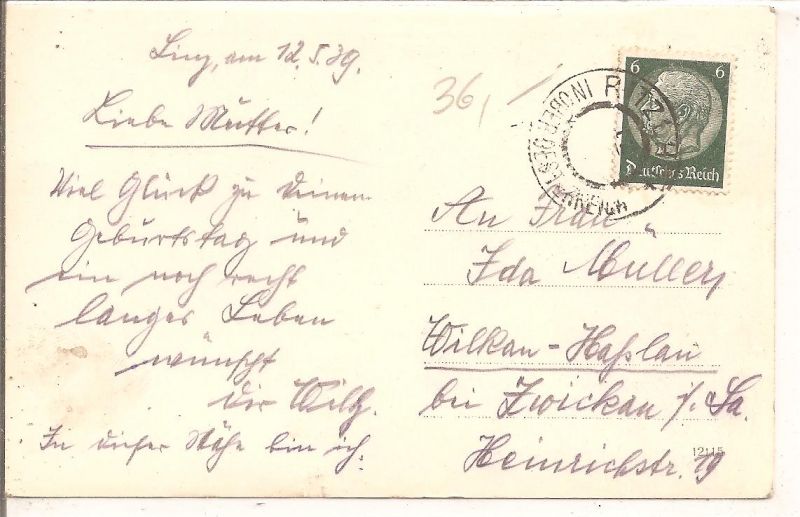 Linz, am 12.5.39.
Liebe Mutter!
Viel Glück zu Deinem
Geburtstag und
ein noch recht
langes Leben
wünscht
Dir Willy.
In dieser Nähe bin ich.
36,
6 6
Deutsches Reich
OBERDONAU
An Frau
Ida Müller,
Wilkau-Haßlau
bei Zwickau i/Sa.
Heinrichstr. 19
12115